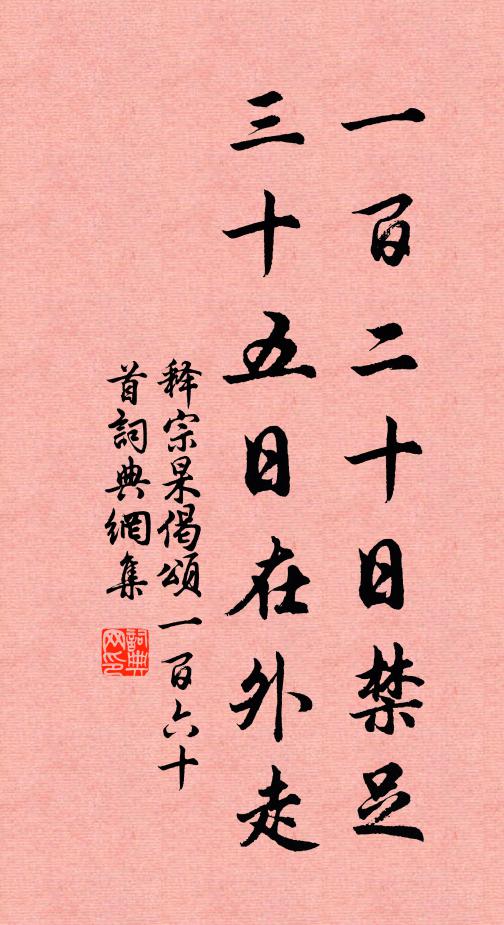 一百二十日禁足
三十五日在外走
释宗杲偈頌一百六十
首詞典網集
詞典网印